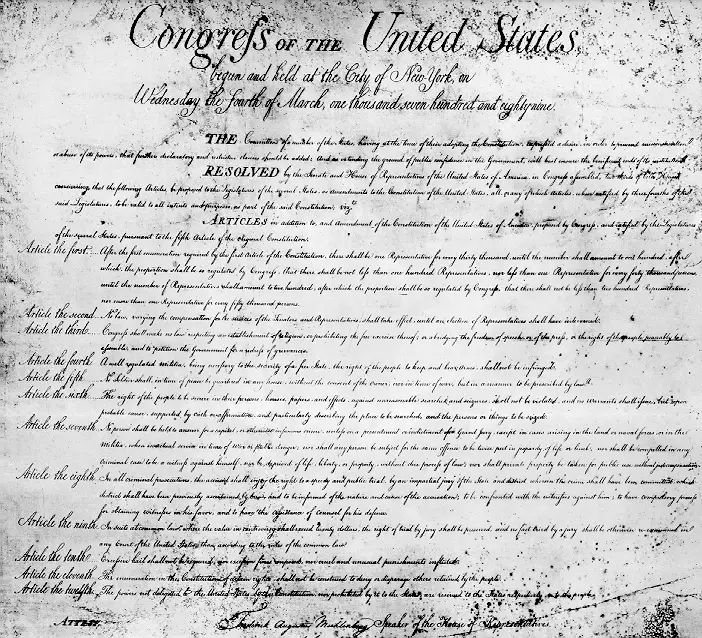 Congreſs OF THE United States,
begun and held at the City of New York, on
Wednesday the fourth of March, one thousand seven hundred and eighty nine.
THE Conventions of a number of the States, having at the time of their adopting the Constitution, expressed a desire, in order to prevent
or abuse of its powers, that further declaratory and restrictive clauses should be added: And as extending the ground of public confidence in the Government, will best ensure the beneficent ends of its institution
RESOLVED by the Senate and House of Representatives of the United States of America, in Congreſs aſsembled, two thirds of both Houses
concurring, that the following Articles be proposed to the Legislatures of the several States, as amendments to the Constitution of the United States, all, or any of which Articles, when ratified by three fourths of the
said Legislatures, to be valid to all intents and purposes, as part of the said Constitution; vizt.
ARTICLES in addition to, and amendment of the Constitution of the United States of America, proposed by Congreſs, and ratified by the Legislatures
of the several States, pursuant to the fifth Article of the original Constitution.
Article the first.... After the first enumeration required by the first Article of the Constitution, there shall be one Representative for every thirty thousand, until the number shall amount to one hundred, after
which, the proportion shall be so regulated by Congreſs, that there shall be not leſs than one hundred Representatives, nor leſs than one Representative for every forty thousand persons,
until the number of Representatives shall amount to two hundred, after which the proportion shall be so regulated by Congreſs, that there shall not be leſs than two hundred Representatives,
nor more than one Representative for every fifty thousand persons.
Article the second... No law, varying the compensation for the services of the Senators and Representatives, shall take effect, until an election of Representatives shall have intervened.
Article the third.... Congreſs shall make no law respecting an establishment of religion, or prohibiting the free exercise thereof; or abridging the freedom of speech, or of the preſs, or the right of the people peaceably to
aſsemble, and to petition the Government for a redreſs of grievances.
Article the fourth. A well regulated militia, being neceſsary to the security of a free State, the right of the people to keep and bear arms, shall not be infringed.
Article the fifth. No Soldier shall, in time of peace be quartered in any house, without the consent of the owner, nor in time of war, but in a manner to be prescribed by law.
Article the sixth. The right of the people to be secure in their persons, houses, papers, and effects, against unreasonable searches and seizures, shall not be violated, and no warrants shall iſsue, but upon
probable cause, supported by oath or affirmation, and particularly describing the place to be searched, and the persons or things to be seized.
Article the seventh. No person shall be held to answer for a capital, or otherwise infamous crime, unleſs on a presentment or indictment of a Grand Jury, except in cases arising in the land or naval forces, or in the
Militia, when in actual service in time of War or public danger; nor shall any person be subject for the same offence to be twice put in jeopardy of life or limb; nor shall be compelled in any
criminal case to be a witneſs against himself, nor be deprived of life, liberty, or property, without due proceſs of law; nor shall private property be taken for public use without just compensation.
Article the eighth. In all criminal prosecutions, the accused shall enjoy the right to a speedy and public trial, by an impartial jury of the State and district wherein the crime shall have been committed, which
district shall have been previously ascertained by law, and to be informed of the nature and cause of the accusation; to be confronted with the witneſses against him; to have compulsory proceſs
for obtaining witneſses in his favor, and to have the aſsistance of counsel for his defence.
Article the ninth. In suits at common law, where the value in controversy shall exceed twenty dollars, the right of trial by jury shall be preserved, and no fact tried by a jury shall be otherwise re-examined in
any Court of the United States, than according to the rules of the common law.
Article the tenth. Exceſsive bail shall not be required, nor exceſsive fines imposed, nor cruel and unusual punishments inflicted.
Article the eleventh. The enumeration in the Constitution, of certain rights, shall not be construed to deny or disparage others retained by the people.
Article the twelfth. The powers not delegated to the United States by the Constitution, nor prohibited by it to the States, are reserved to the States respectively, or to the people.
ATTEST,
Frederick Augustus Muhlenberg Speaker of the House of Representatives